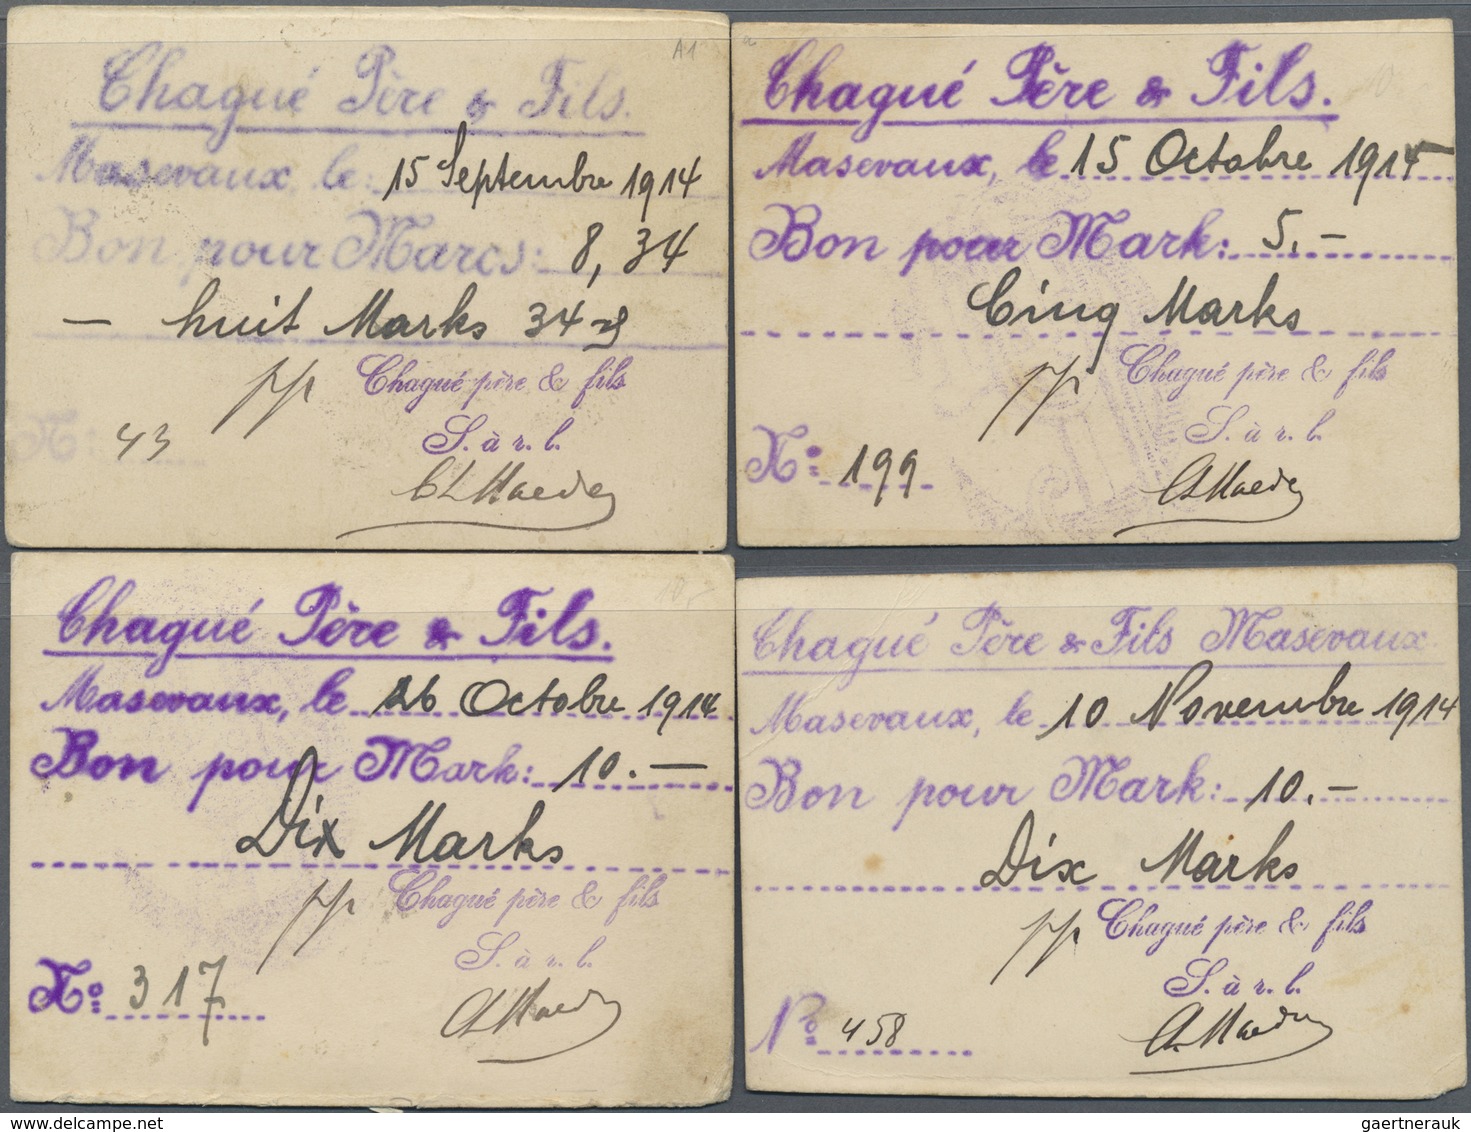 A1
Chagué Père & Fils.
Masevaux le: 15 Septembre 1914
Bon pour Marcs: 8,34
— huit Marks 34
pp Chagué père & fils
S. à r. l.
N: 43
Chagué Père & Fils.
Masevaux, le 15 Octobre 1914
Bon pour Mark: 5.—
Cinq Marks
pp Chagué père & fils
S. à r. l.
No 199
Chagué Père & Fils.
Masevaux, le 26 Octobre 1914
Bon pour Mark: 10.—
Dix Marks
pp Chagué père & fils
S. à r. l.
No 317
Chagué Père & Fils Masevaux.
Masevaux, le 10 Novembre 1914
Bon pour Mark: 10.—
Dix Marks
pp Chagué père & fils
S. à r. l.
No 458
delcampe.net
gaertnerauk